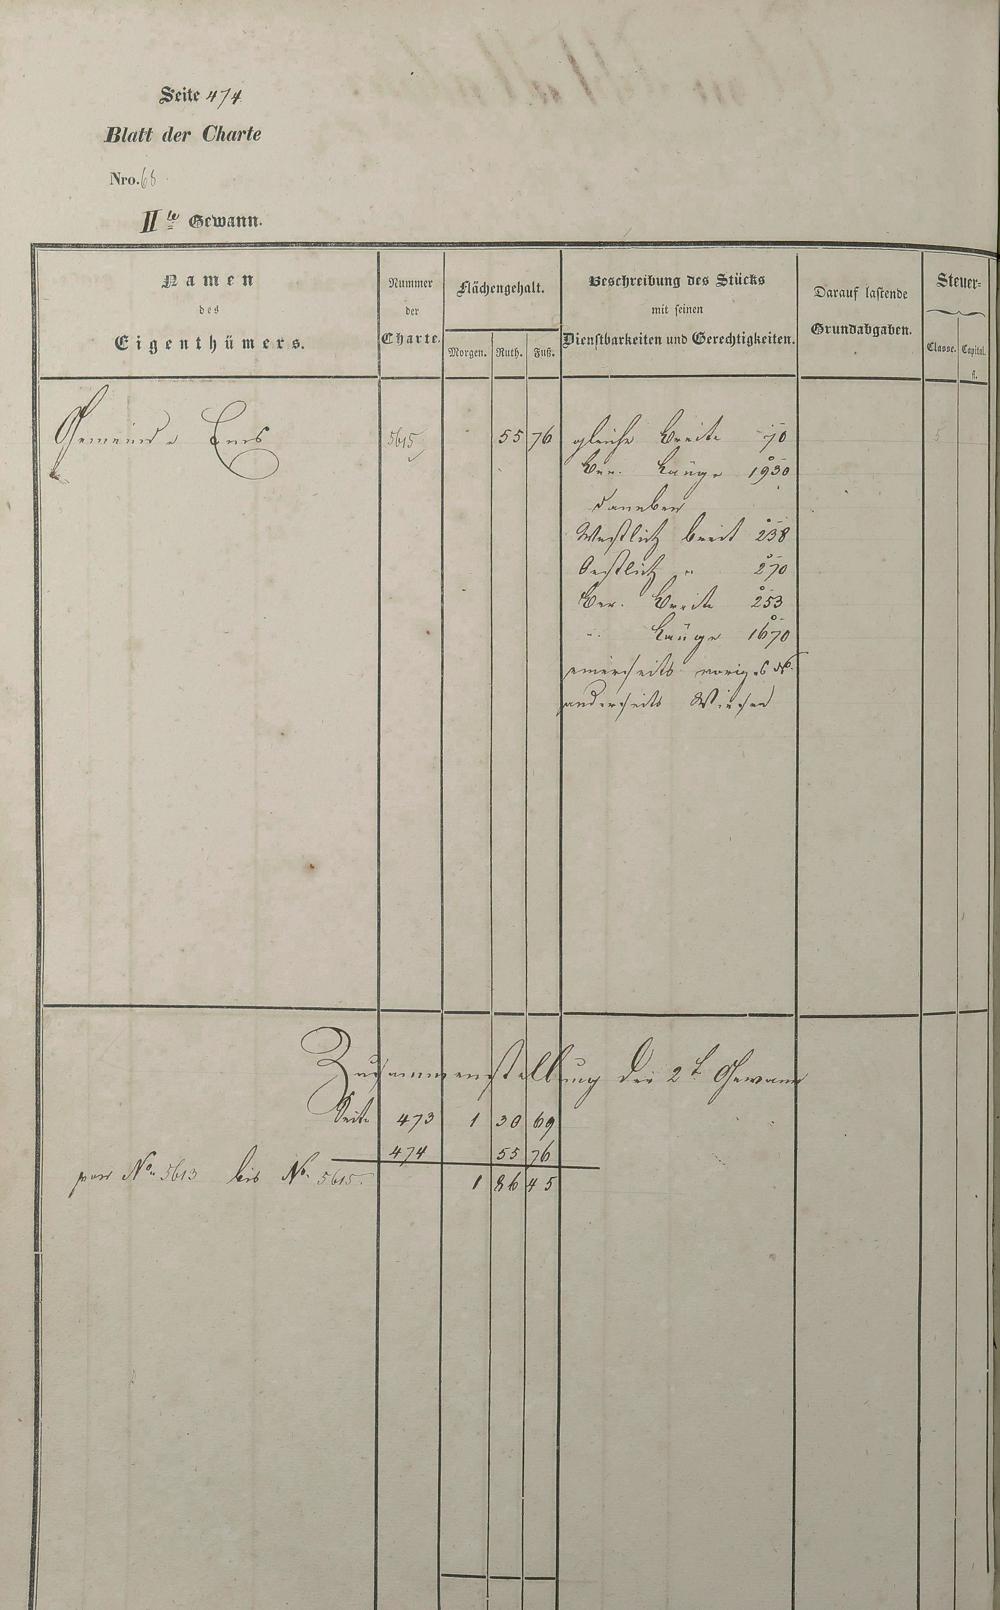 Seite 474
Blatt der Charte
Nro. 68
IIte Gewann.
Namen
des
Eigenthümers.
Nummer
der
Charte.
Flächengehalt.
Morgen. Ruth. Fuß.
Beschreibung des Stücks
mit seinen
Dienstbarkeiten und Gerechtigkeiten.
Darauf lastende
Grundabgaben.
Steuer-
Classe. Capital.
fl.
Gemeinde Ems 5615 55 76 gleiche Breite 70
Ber. Länge 1930
daneben
Westlich breit 238
Oestlich " 270
Ber. Breite 253
" Länge 1670
einerseits voriges No.
anderseits Wiesen
Zusammenstellung der 2t Gewann
Seite 473 1 30 69
474 55 76
von No. 5613 bis No. 5615. 1 86 45